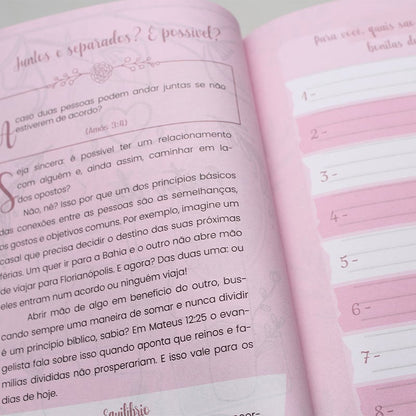 Juntos e separados? É possível?
Acaso duas pessoas podem andar juntas se não
estiverem de acordo?
(Amós 3:4)
Seja sincera: é possível ter um relacionamento
com alguém e, ainda assim, caminhar em la-
dos opostos?
Não, né? Isso por que um dos princípios básicos
das conexões entre as pessoas são as semelhanças,
os gostos e objetivos comuns. Por exemplo, imagine um
casal que precisa decidir o destino das suas próximas
férias. Um quer ir para a Bahia e o outro não abre mão
de viajar para Florianópolis. E agora? Das duas uma: ou
eles entram num acordo ou ninguém viaja!
Abrir mão de algo em benefício do outro, bus-
cando sempre uma maneira de somar e nunca dividir
é um princípio bíblico, sabia? Em Mateus 12:25 o evan-
gelista fala sobre isso quando aponta que reinos e fa-
mílias divididas não prosperariam. E isso vale para os
dias de hoje.
Equilíbrio
Para você, quais sã
bonitas d
1-
2-
3-
4-
5-
6-
7-
8-